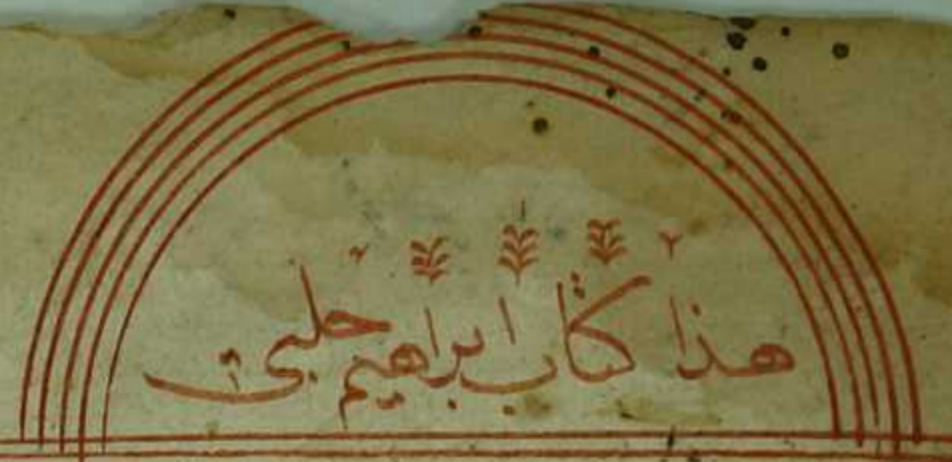 هذا كتاب ابراهيم حلبي